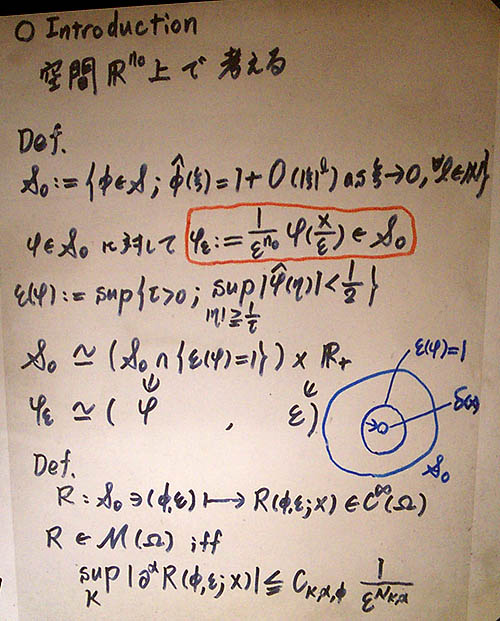 0 Introduction
空間 ℝ^{n₀} 上で 考える
Def.
𝒮₀ := {φ∈𝒮 ; φ̂(ξ) = 1 + O(|ξ|^ℓ) as ξ→0, ∀ℓ∈ℕ}
φ∈𝒮₀ に対して φ_ε := 1/ε^{n₀} φ(x/ε) ∈ 𝒮₀
ε(φ) := sup{τ>0 ; sup_{|η|≧1/τ} |φ̂(η)| < 1/2}
𝒮₀ ≃ (𝒮₀ ∩ {ε(φ)=1}) × ℝ₊
φ_ε ≃ ( φ , ε)
ε(φ)=1
δ(x)
𝒮₀
Def.
R : 𝒮₀ ∋ (φ,ε) ↦ R(φ,ε;x) ∈ C^∞(Ω)
R ∈ M(Ω) iff
sup_K |∂^α R(φ,ε;x)| ≦ C_{K,α,φ} 1/ε^{N_{K,α}}